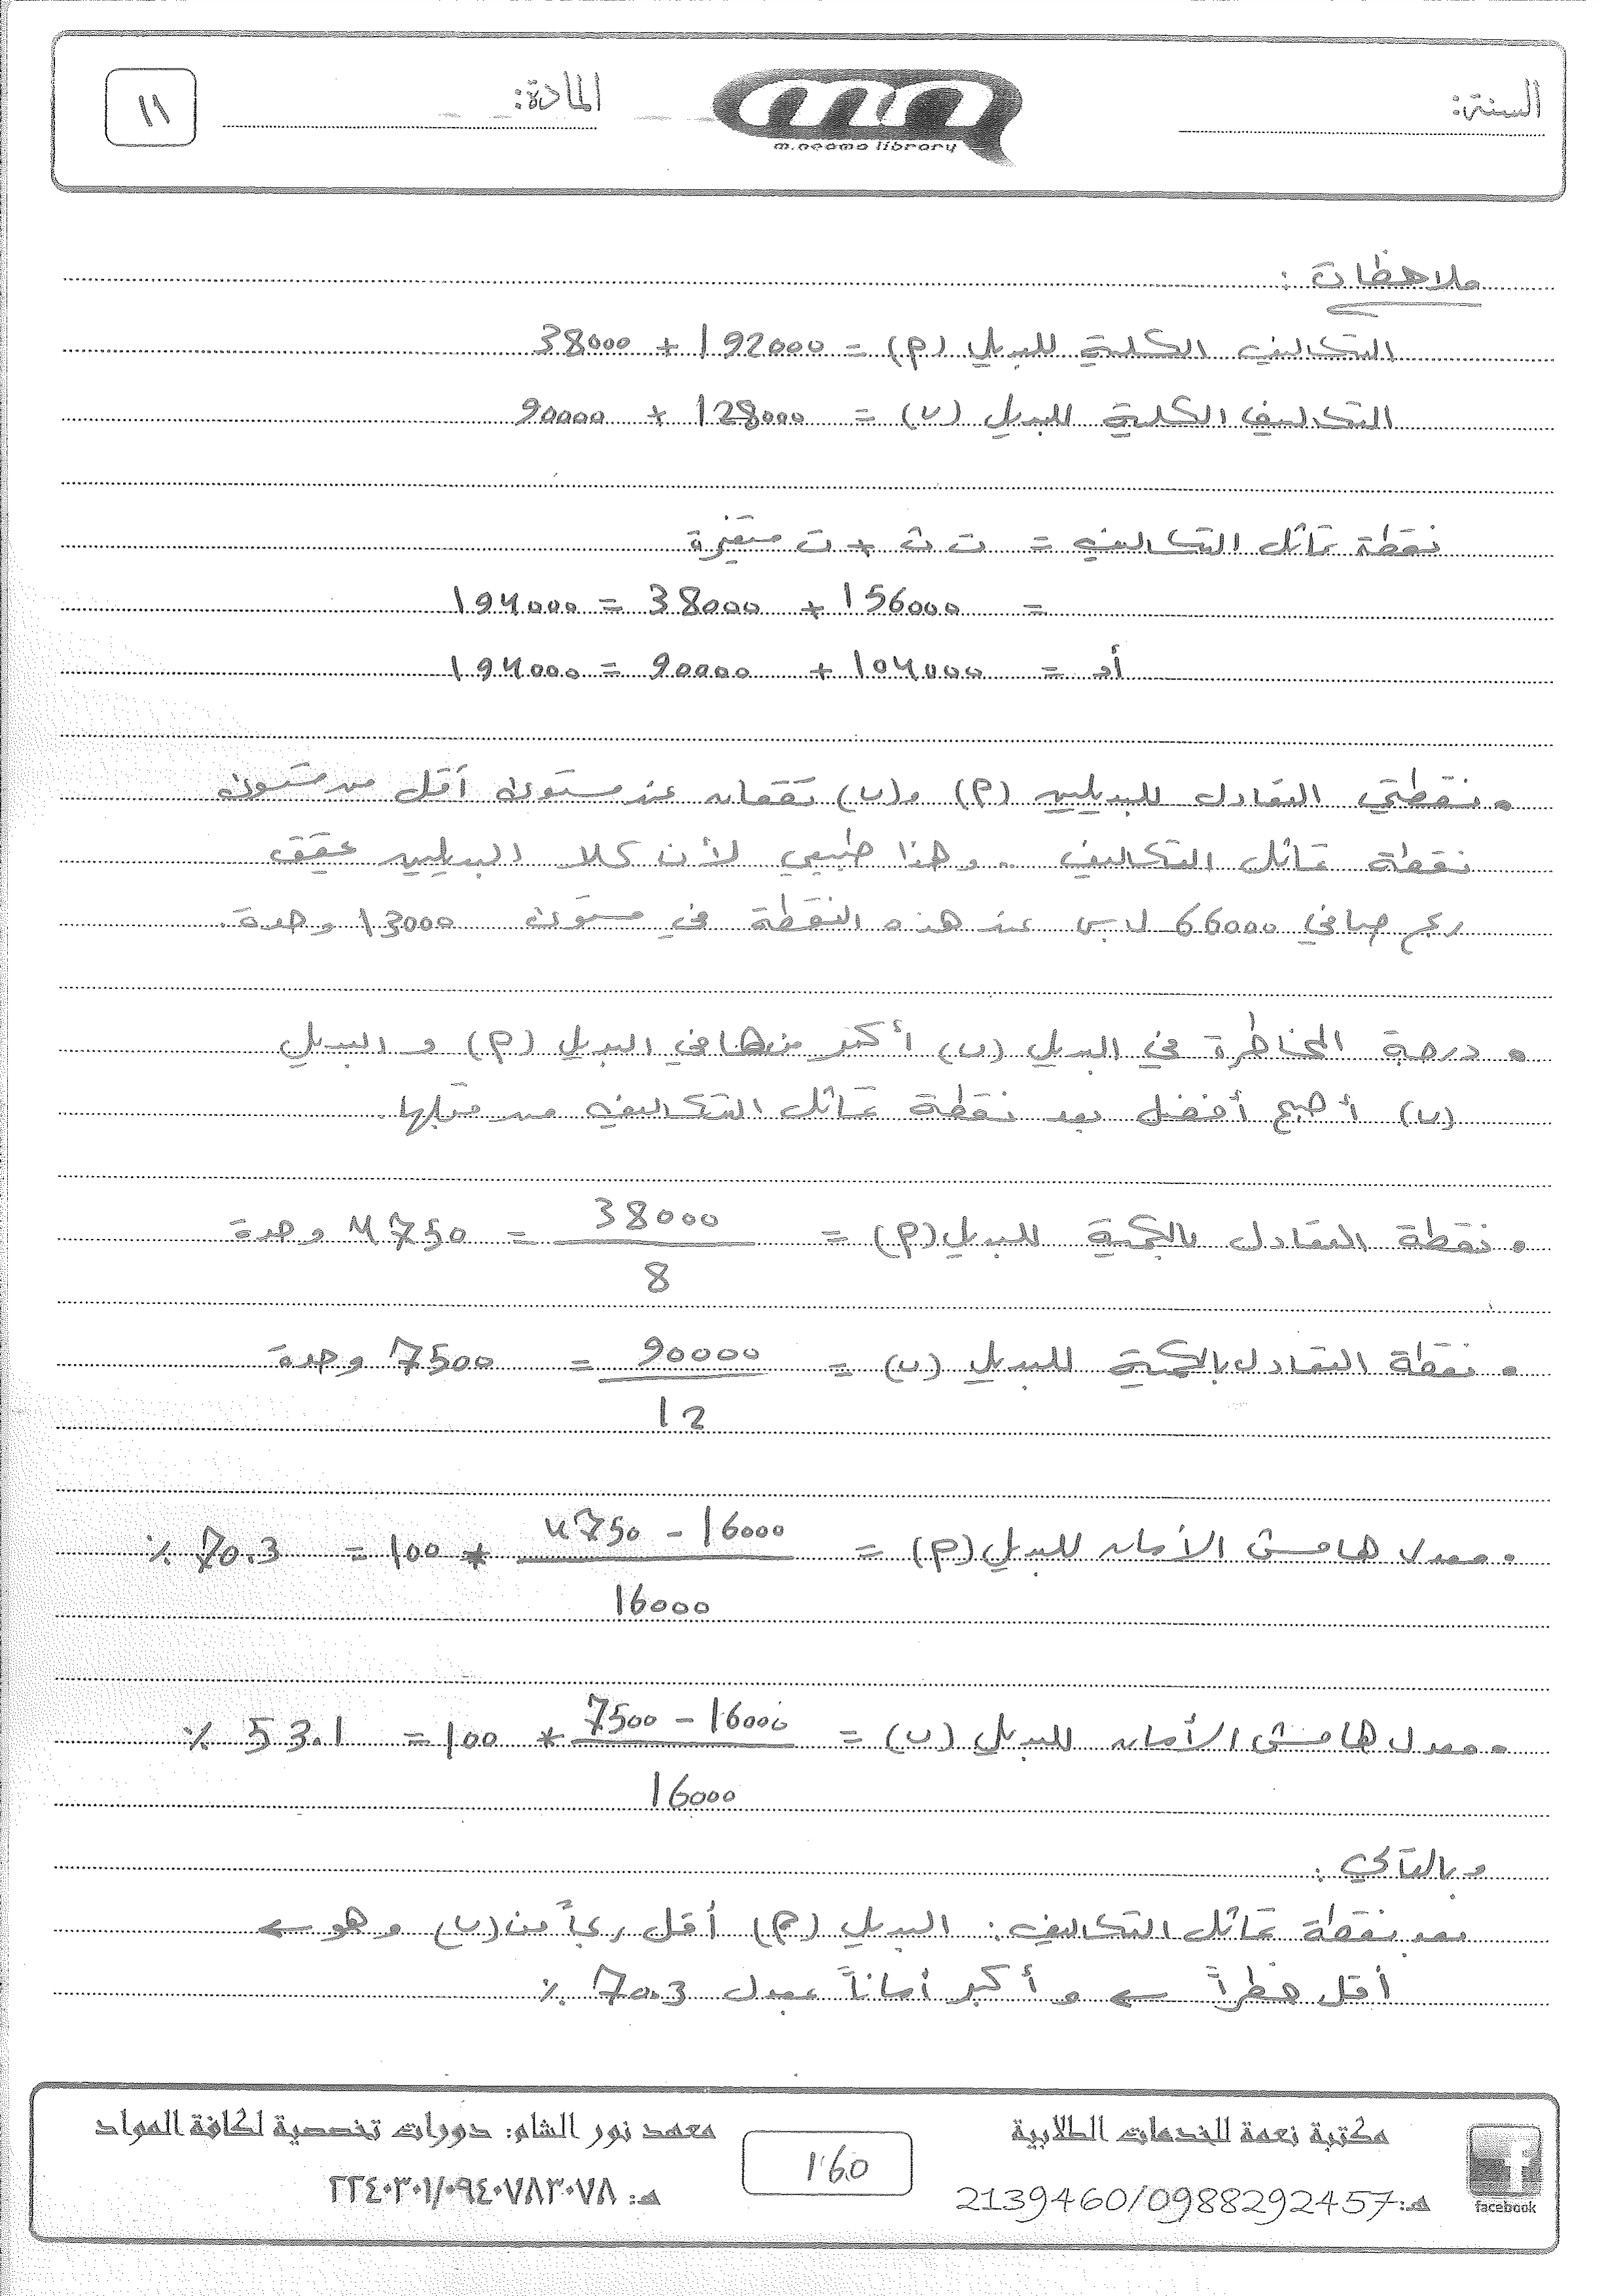 السنة:
m.neama library
المادة:
١١
ملاحظات:
التكاليف الكلية للبديل (م) = 192000 + 38000
التكاليف الكلية للبديل (ب) = 128000 + 90000
نقطة تماثل التكاليف = ت ث + ت متغيرة
= 156000 + 38000 = 194000
أو = 104000 + 90000 = 194000
• نقطتي التعادل للبديلين (م) و(ب) تقعان عند مستوى أقل من مستوى
نقطة تماثل التكاليف .. وهذا طبيعي لأن كلا البديلين يحقق
ربح صافي 66000 ل.س عند هذه النقطة في مستوى 13000 وحدة.
• درجة المخاطرة في البديل (ب) أكبر منها في البديل (م) و البديل
(ب) أصبح أفضل بعد نقطة تماثل التكاليف من قبلها.
• نقطة التعادل بالكمية للبديل (م) = 38000 / 8 = 4750 وحدة
• نقطة التعادل بالكمية للبديل (ب) = 90000 / 12 = 7500 وحدة
• معدل هامش الأمان للبديل (م) = 16000 - 4750 / 16000 * 100 = 70.3 ٪
• معدل هامش الأمان للبديل (ب) = 16000 - 7500 / 16000 * 100 = 53.1 ٪
وبالتالي:
بعد نقطة تماثل التكاليف: البديل (م) أقل ربحاً من (ب) وهو ←
أقل خطراً ← و أكبر أماناً بمعدل 70.3 ٪
مكتبة نعمة للخدمات الطلابية
هـ: 2139460/0988292457
facebook
160
معهد نور الشام: دورات تخصصية لكافة المواد
هـ: ٢٢٤٠٣٠١/٠٩٤٠٧٨٣٠٧٨